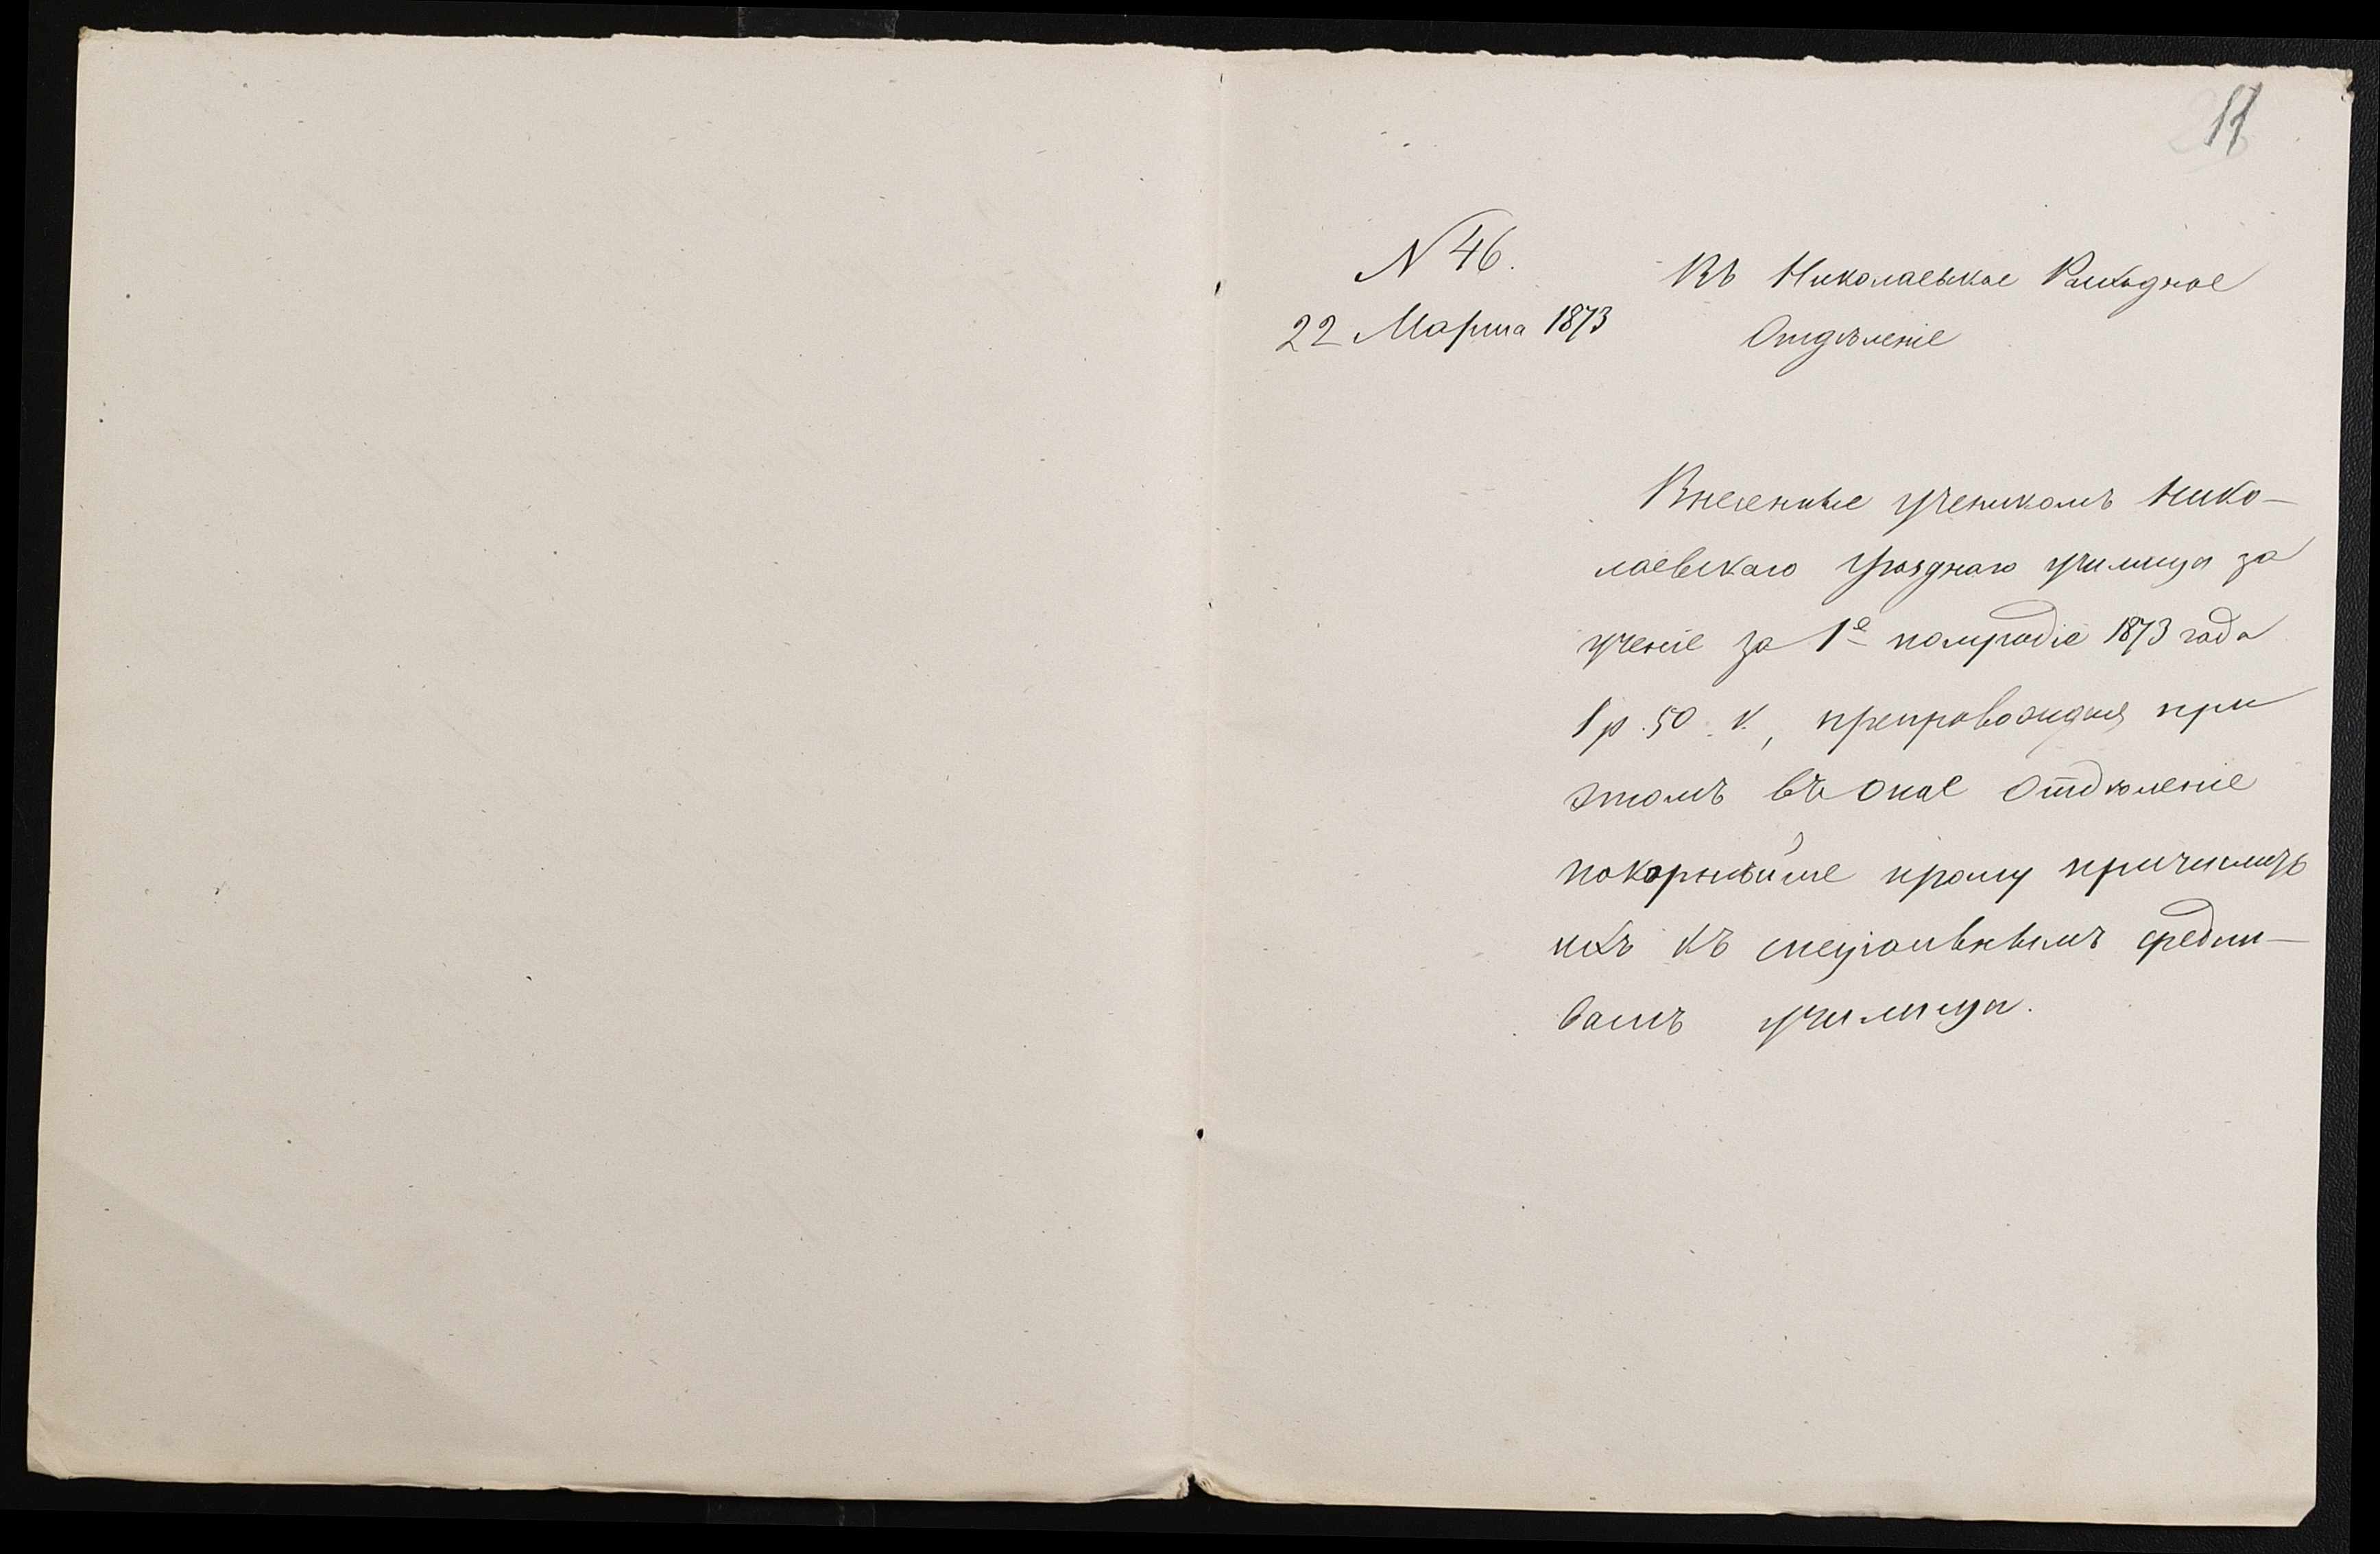 11
N 46.
22 Марта 1873
Въ Николаевское Расходное
Отдѣленіе
Внесенные ученикомъ Нико-
лаевскаго Уѣзднаго училища за
ученіе за 1е полугодіе 1873 года
1 р. 50 к., препровождая при
этомъ въ оное Отдѣленіе
покорнѣйше прошу причислить
ихъ къ спеціальнымъ средст-
вамъ училища.